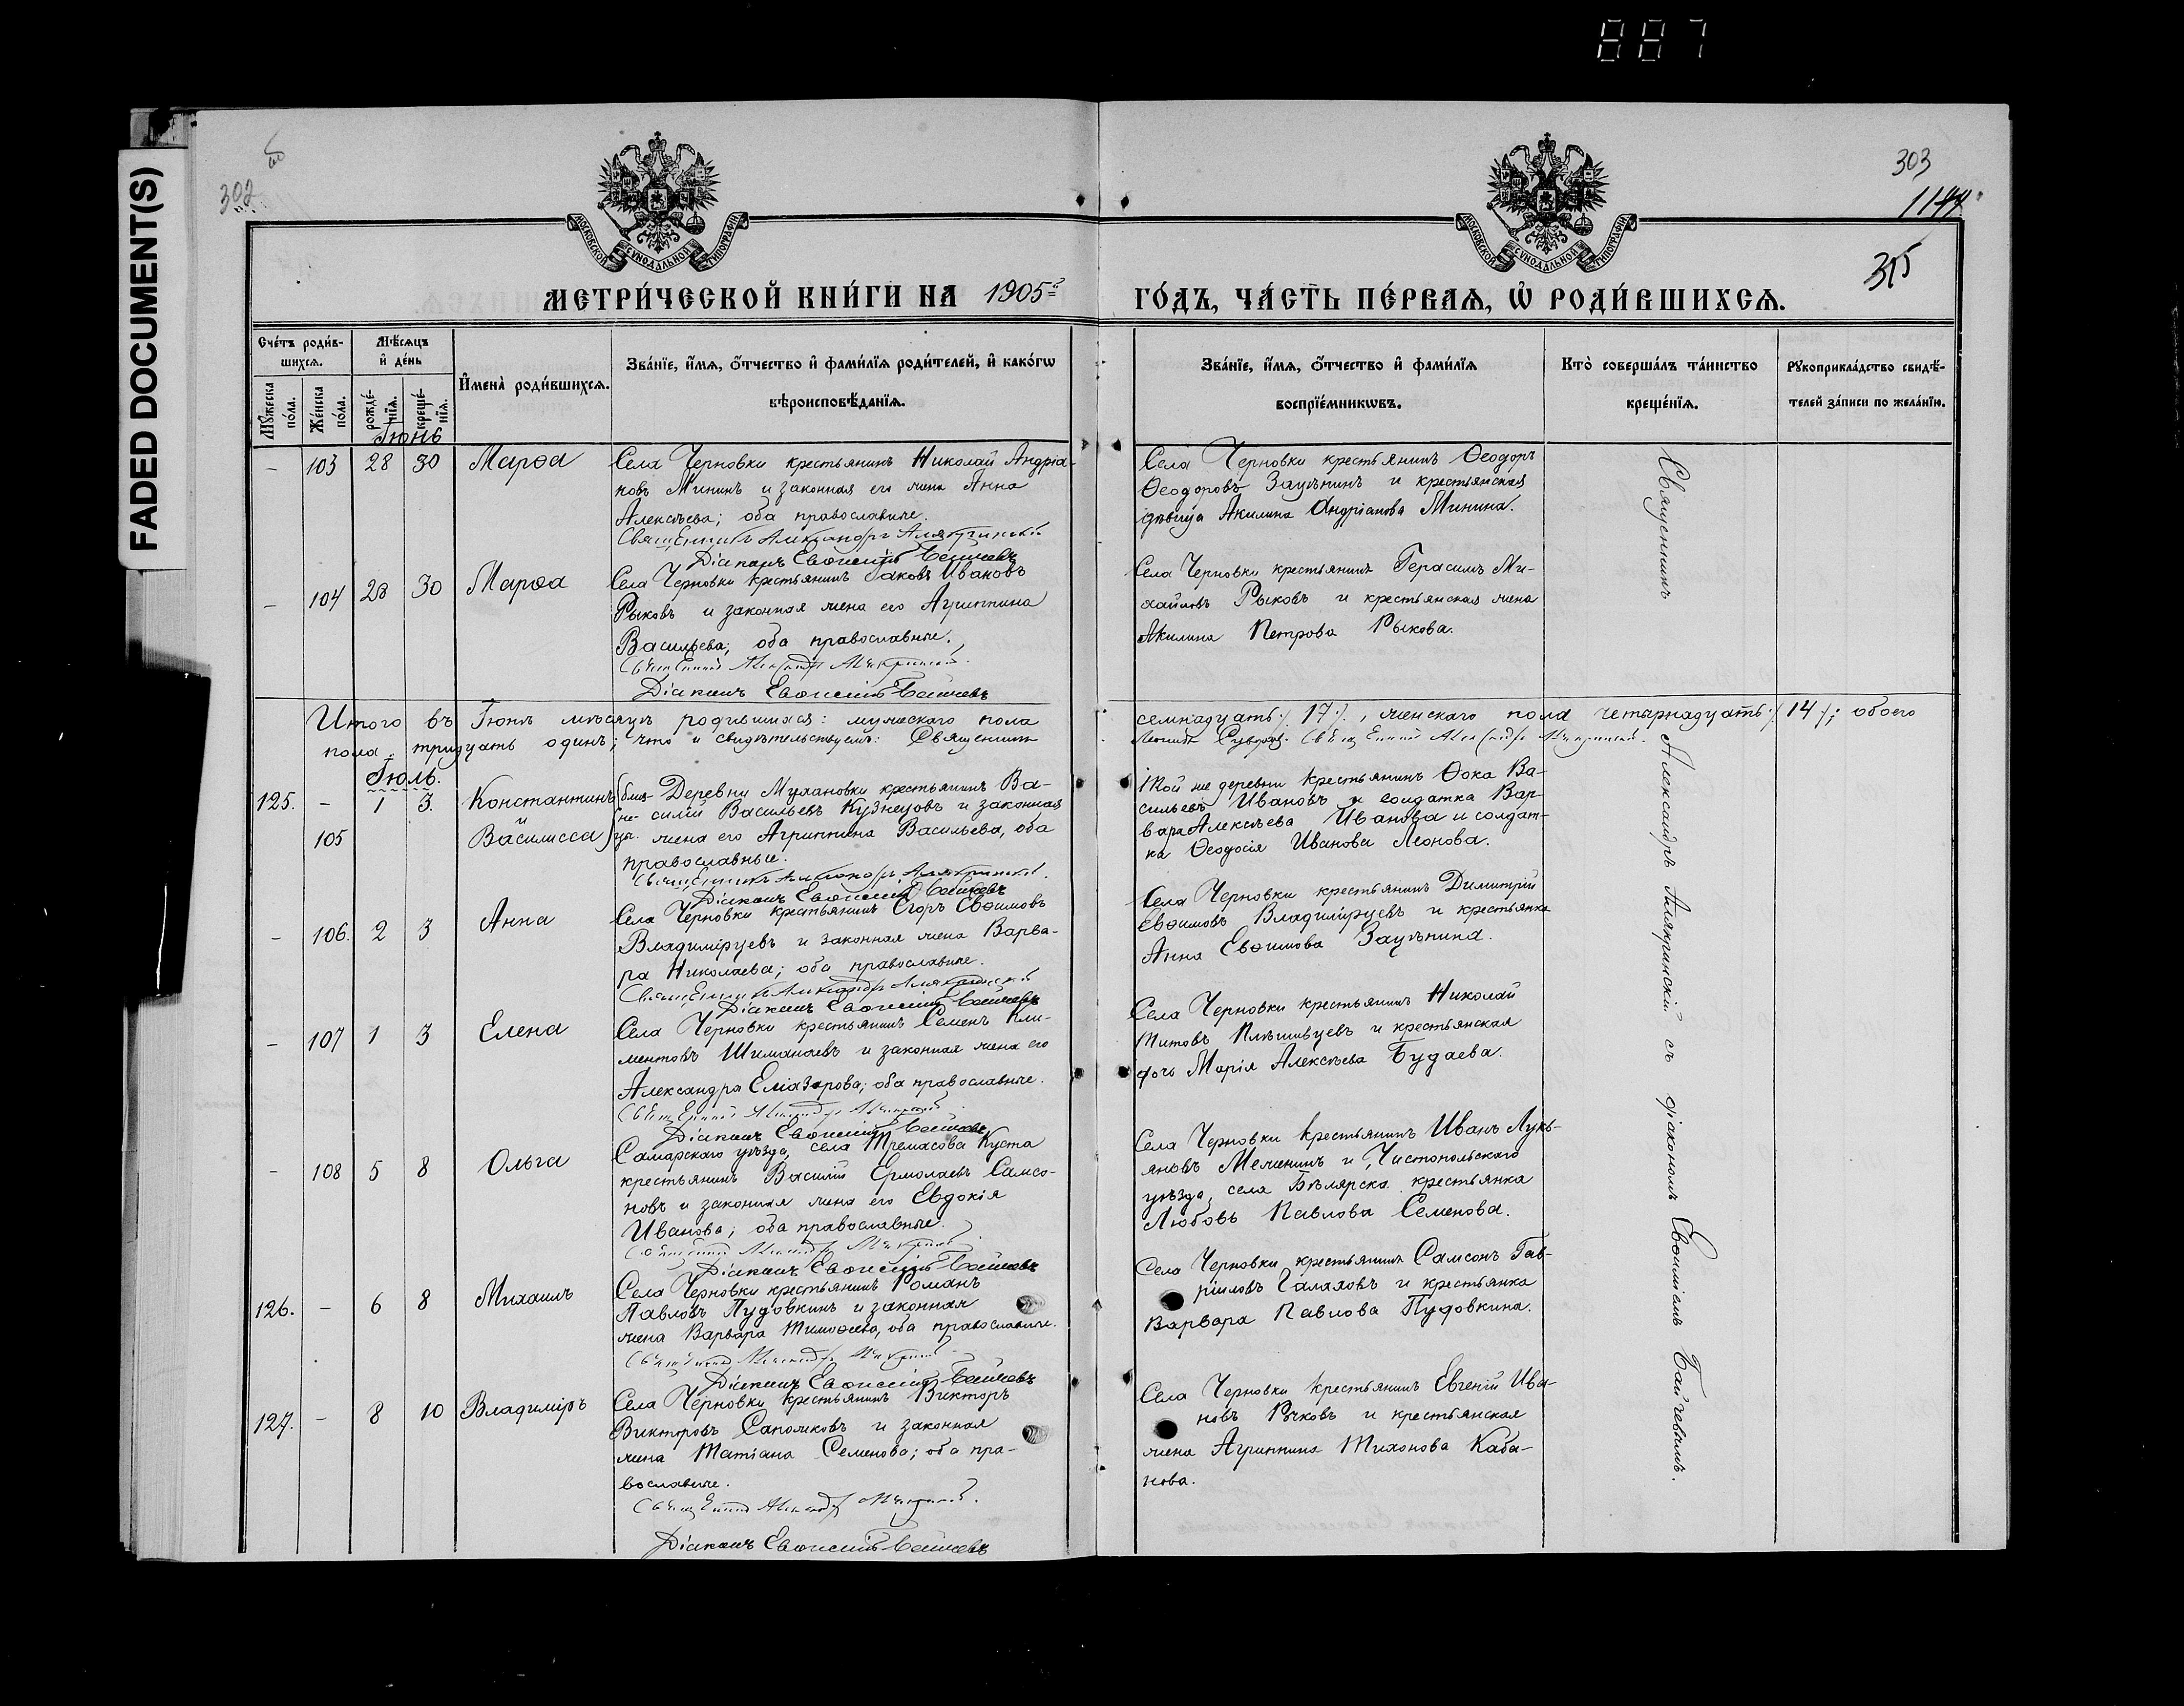 887
FADED DOCUMENT(S)
302
303
1144
315
МОСКОВСКОЙ СѴНОДАЛЬНОЙ ТИПОГРАФІИ
МОСКОВСКОЙ СѴНОДАЛЬНОЙ ТИПОГРАФІИ
МЕТРИ́ЧЕСКОЙ КНИ́ГИ НА 1905й
ГО́ДЪ, ЧА́СТЬ ПЕ́РВАѦ, Ѡ҆ РОДИ́ВШИХСѦ.
Сче́тъ роди́в-
шихсѧ.
Мꙋ́жеска по́ла.
Же́нска по́ла.
Мѣ́сѧцъ
и҆ де́нь
рожде́-
нїѧ.
креще́-
нїѧ.
И҆мена̀ роди́вшихсѧ.
Зва́нїе, и҆́мѧ, ѻ҆́тчество и҆ фами́лїѧ роди́телей, и҆ како́гѡ
вѣроисповѣ́данїѧ.
Зва́нїе, и҆́мѧ, ѻ҆́тчество и҆ фами́лїѧ
воспрїе́мникѡвъ.
Кто̀ соверша́лъ та́инство
креще́нїѧ.
Рꙋкоприкла́дство свидѣ́-
телей за́писи по жела́нїю.
Іюнь
– 103 28 30 Марѳа
Села Черновки крестьянинъ Николай Андріа-
новъ Мининъ и законная его жена Анна
Алексѣева; оба православные.
Священникъ Александръ Алякринскій
Діаконъ Евѳимій Байчевъ
Села Черновки крестьянинъ Ѳеодоръ
Ѳеодоровъ Зацѣпинъ и крестьянская
дѣвица Акилина Андріанова Минина.
– 104 28 30 Марѳа
Села Черновки крестьянинъ Іаковъ Ивановъ
Рыковъ и законная жена его Агриппина
Васильева; оба православные.
Священникъ Александръ Алякринскій.
Діаконъ Евѳимій Байчевъ
Села Черновки крестьянинъ Герасимъ Ми-
хайловъ Рыковъ и крестьянская жена
Акилина Петрова Рыкова.
Итого въ Іюнѣ мѣсяцѣ родившихся: мужескаго пола семнадцать /. 17 /. , женскаго пола четырнадцать /. 14 /.; обоего
пола тридцать одинъ; что и свидѣтельствуемъ: Священникъ Священникъ Александръ Алякринскій.
Іюль.
125. – 1 3. Константинъ
и
105 Василисса
близ-
не-
цы.
Деревни Мулановки крестьянинъ Ва-
силій Васильевъ Кузнецовъ и законная
жена его Агриппина Васильева, оба
православные.
Священникъ Александръ Алякринскій.
Діаконъ Евѳимій Байчевъ
Той же деревни крестьянинъ Ѳока Ва-
сильевъ Ивановъ и солдатка Вар-
вара Алексѣева Иванова и солдат-
ка Ѳеодосія Иванова Леонова.
– 106. 2 3 Анна
Села Черновки крестьянинъ Егоръ Евѳимовъ
Владимірцевъ и законная жена Варва-
ра Николаева; оба православные.
Священникъ Александръ Алякринскій
Діаконъ Евѳимій Байчевъ
Села Черновки крестьянинъ Димитрій
Евѳимовъ Владимірцевъ и крестьянка
Анна Евѳимова Зацѣпина.
– 107 1 3 Елена
Села Черновки крестьянинъ Семенъ Кли-
ментовъ Шиманаевъ и законная жена его
Александра Еліазарова; оба православные.
Священникъ Александръ Алякринскій
Діаконъ Евѳимій Байчевъ
Села Черновки крестьянинъ Николай
Титовъ Плѣшивцевъ и крестьянская
дочь Марія Алексѣева Будаева.
– 108 5 8 Ольга
Самарскаго уѣзда, села Тремасова Куста
крестьянинъ Василій Ермолаевъ Самсо-
новъ и законная жена его Евдокія
Иванова; оба православные.
Священникъ Александръ Алякринскій
Діаконъ Евѳимій Байчевъ
Села Черновки крестьянинъ Иванъ Лукь-
яновъ Меженинъ и Чистопольскаго
уѣзда, села Билярска крестьянка
Любовь Павлова Семенова.
126. – 6 8 Михаилъ
Села Черновки крестьянинъ Романъ
Павловъ Пудовкинъ и законная
жена Варвара Тимоѳеева, оба православные.
Священникъ Александръ Алякринскій
Діаконъ Евѳимій Байчевъ
Села Черновки крестьянинъ Самсонъ Гав-
ріиловъ Галяховъ и крестьянка
Варвара Павлова Пудовкина.
127. – 8 10 Владиміръ
Села Черновки крестьянинъ Викторъ
Викторовъ Сапожковъ и законная
жена Татіана Семенова; оба пра-
вославные.
Священникъ Александръ Алякринскій.
Діаконъ Евѳимій Байчевъ
Села Черновки крестьянинъ Евгеній Ива-
новъ Рычковъ и крестьянская
жена Агриппина Тихонова Каба-
нова.
Священникъ Александръ Алякринскій съ діакономъ Евѳиміемъ Байчевымъ.